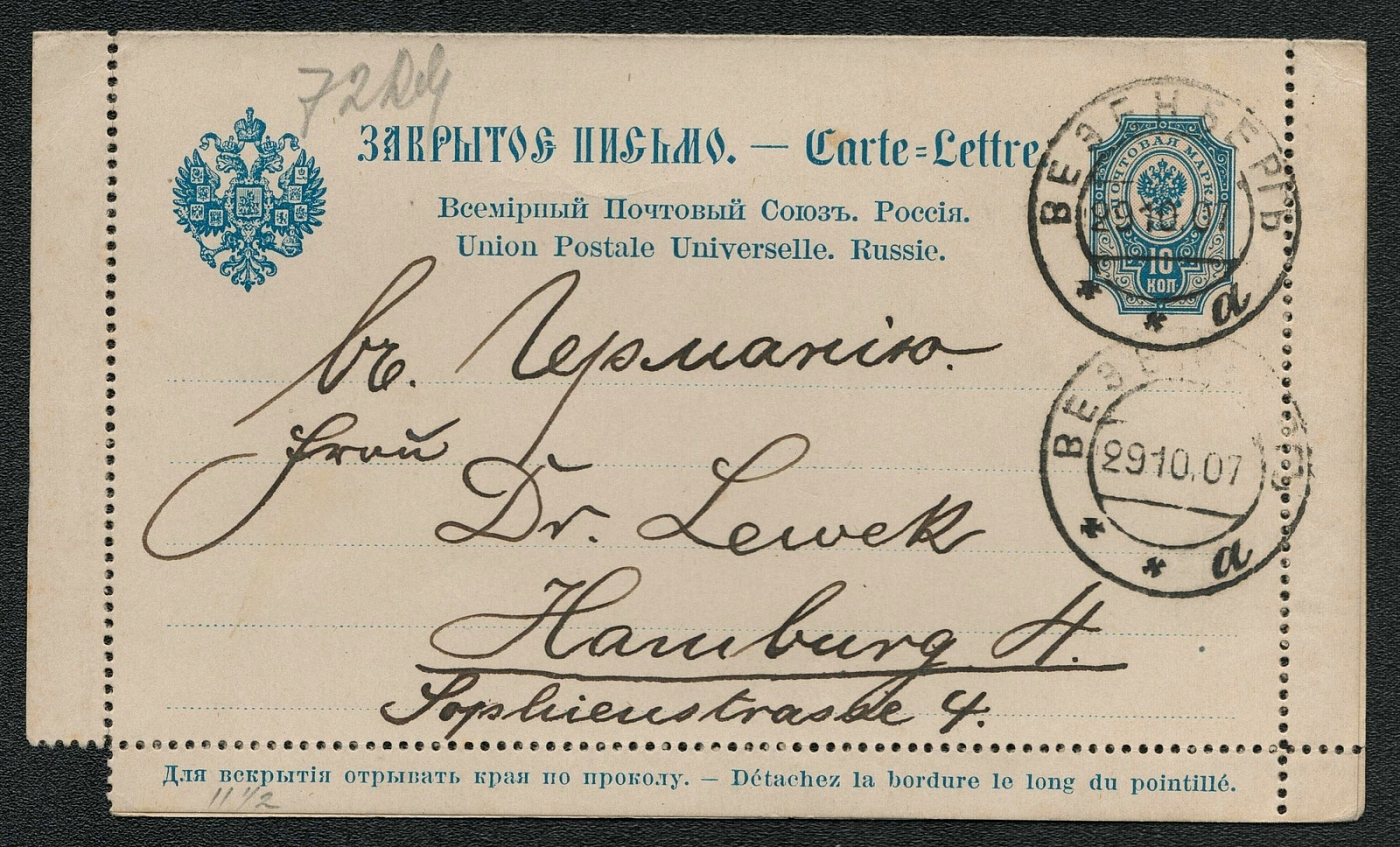 ЗАКРЫТОЕ ПИСЬМО. — Carte-Lettre
Всемірный Почтовый Союзъ. Россія.
Union Postale Universelle. Russie.
ПОЧТОВАЯ МАРКА
10
КОП
ВЕЗЕНБЕРГЪ
29 10 07
а
въ Германію.
Frau
Dr. Lewek
Hamburg 4.
Sophienstrasse 4.
ВЕЗ
29 10.07
а
Для вскрытія отрывать края по проколу. — Détachez la bordure le long du pointillé.
11 1/2